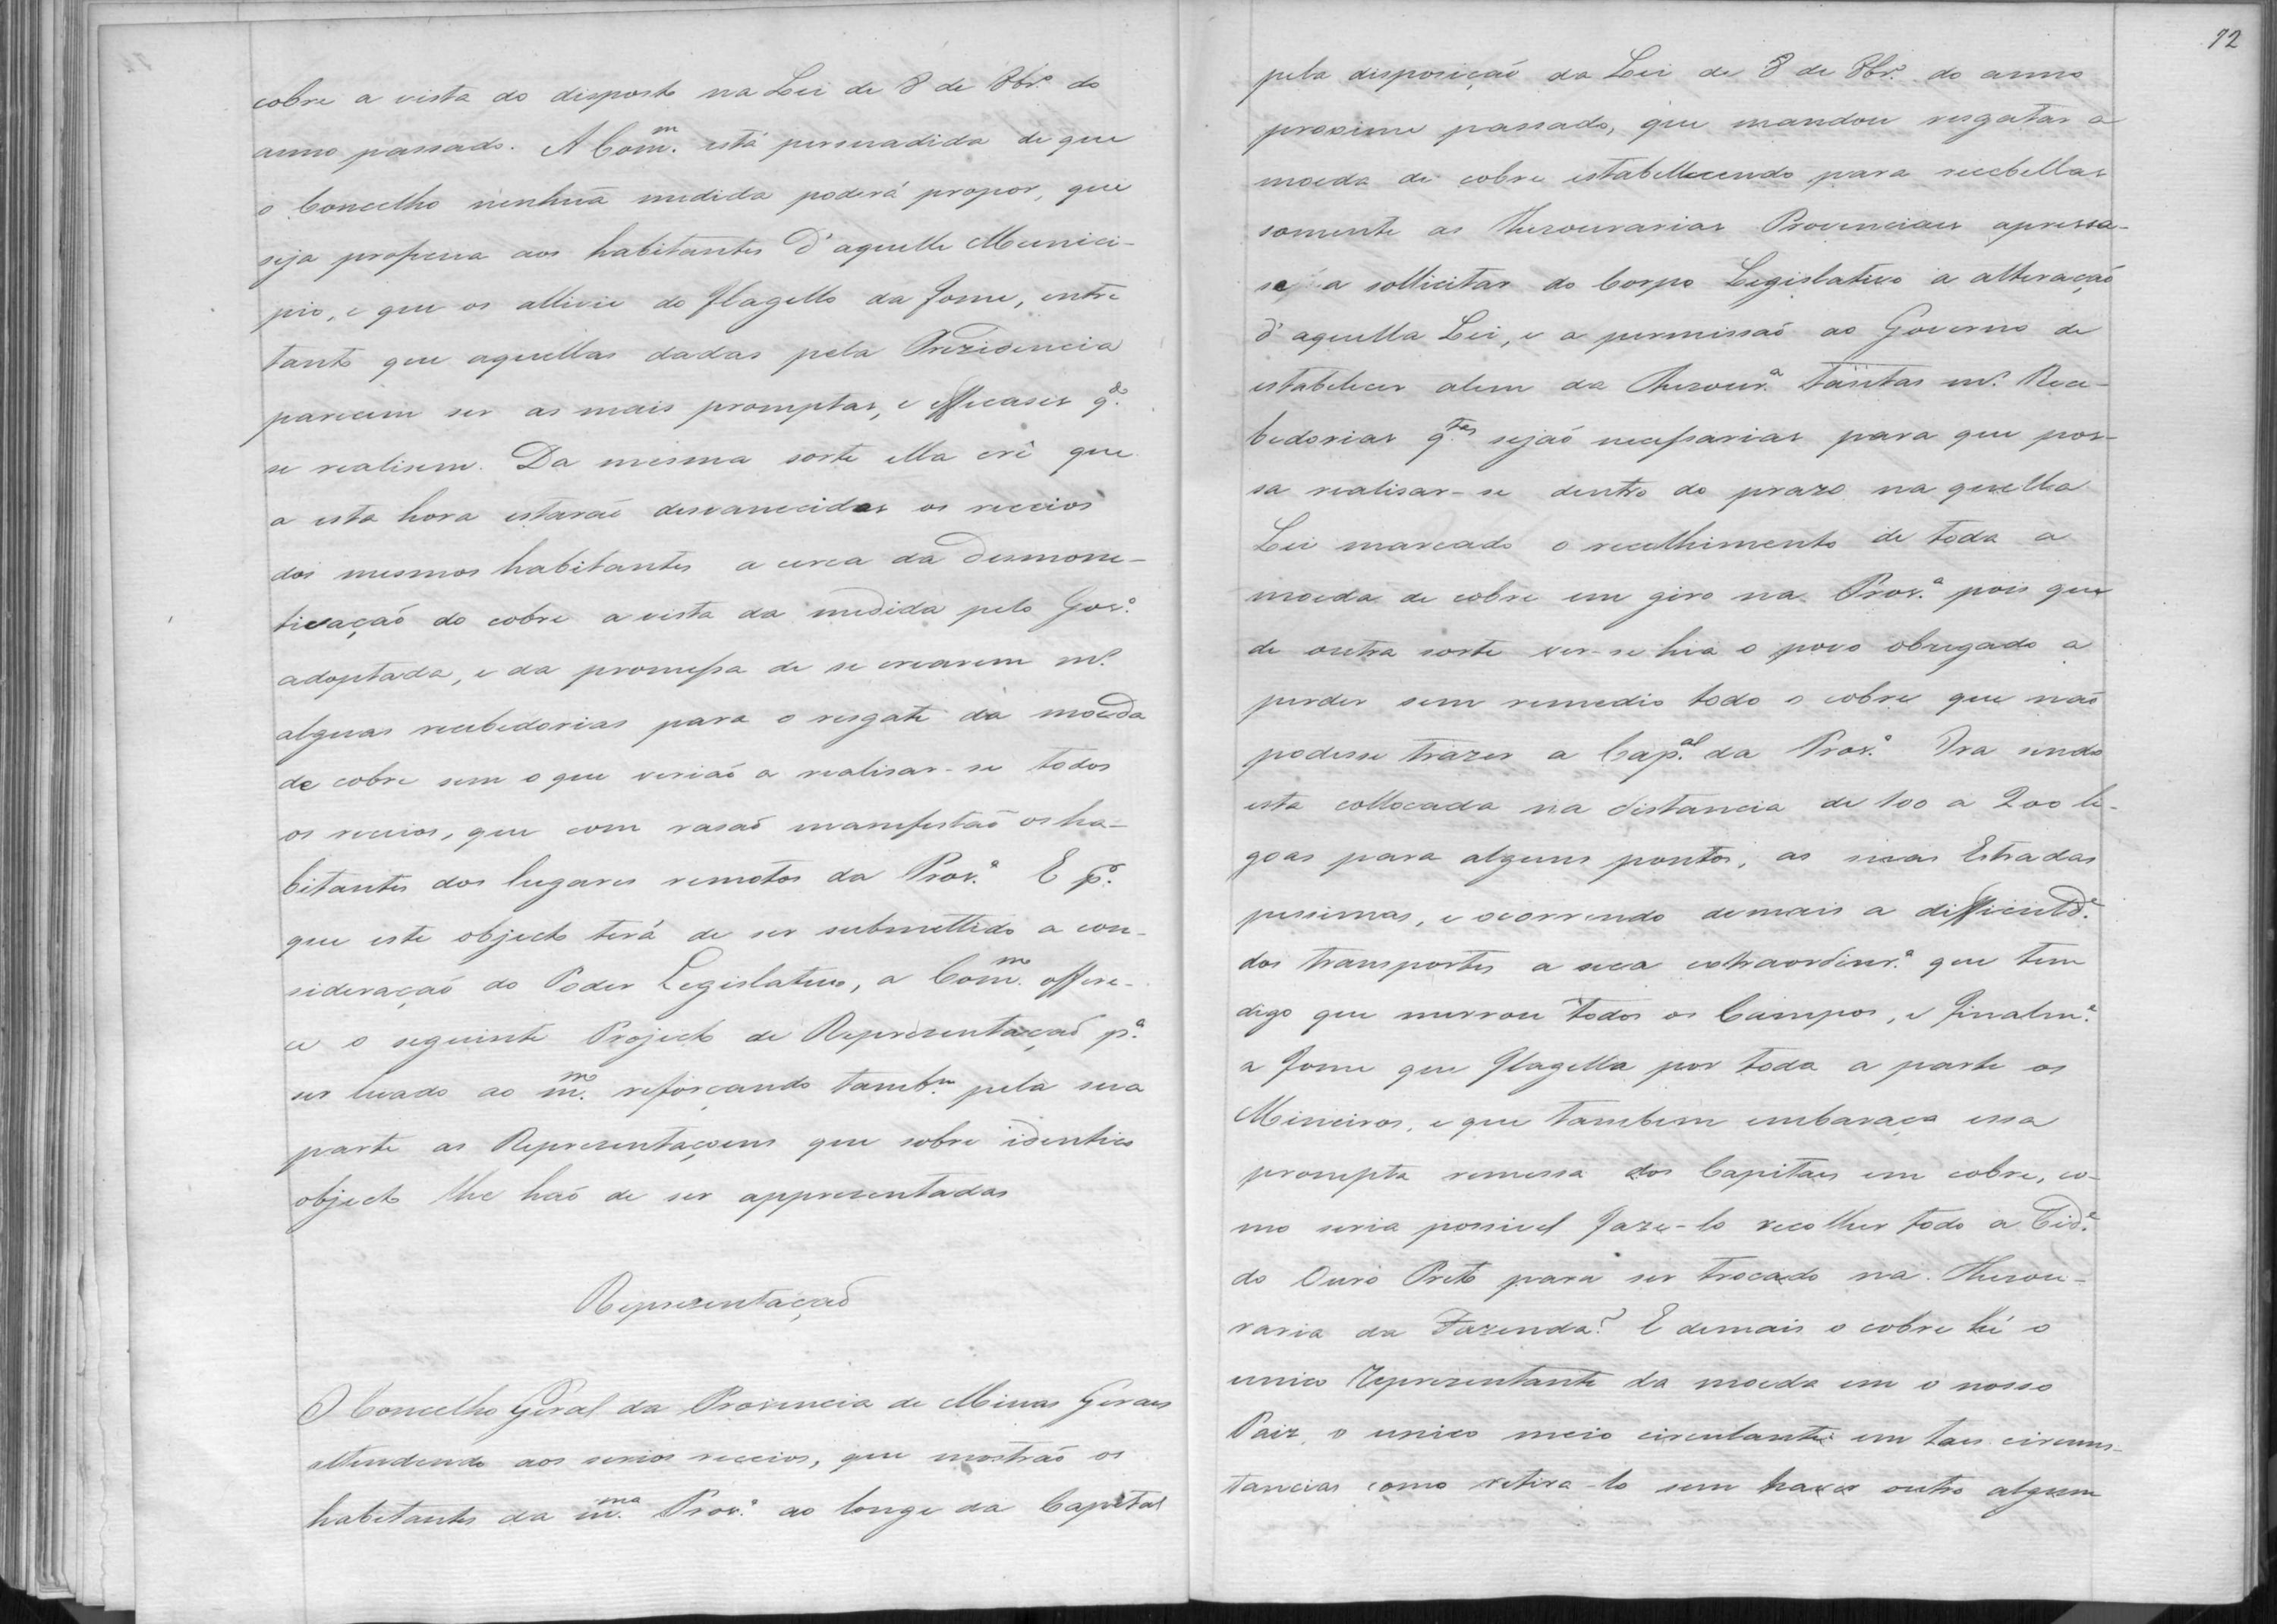 cobre a vista do disposto na Lei de 8 de 8br.º do
anno passado. A Com.m está persuadida de que
o Concelho nenhũa medida poderá propor, que
seja proficua aos habitantes d'aquelle Munici-
pio, e que os allivie do flagello da fome, entre
tanto que aquellas dadas pela Prezidencia
parecem ser as mais promptas, e efficases q.do
se realisem. Da mesma sorte ella crê que
a esta hora estarão desvanecidos os receios
dos mesmos habitantes a cerca da desmone-
tisação do cobre a vista da medida pelo Gov.º
adoptada, e da promessa de se crearem m.s
algúas recebedorias para o resgate da moeda
de cobre sem o que virião a realisar-se todos
os receios, que com rasaõ manifestaõ os ha-
bitantes dos lugares remotos da Prov.ª E p.r
que este objecto terá de ser submettido a con-
sideração do Poder Legislativo, a Com.m offere-
ce o seguinte Projecto de Representação p.ª
ser levado ao m.mo reforçando tamb.m pela sua
parte as Representaçoens que sobre identico
objecto lhe haõ de ser appresentadas
Representaçaõ
O Concelho Geral da Provincia de Minas Geraes
attendendo aos serios receios, que mostraõ os
habitantes da m.ma Prov.ª ao longe da Capital
72
pela disposiçaõ da Lei de 8 de 8br.º do anno
proximo passado, que mandou resgatar a
moeda de cobre estabellecendo para recebellas
somente as Thesourarias Provinciaes apressa-
se a sollicitar do Corpo Legislativo a alteraçaõ
d'aquella Lei, e a permissaõ ao Governo de
estabelecer alem da Thesour.ª tantas m.s Rece-
bedorias q.tas sejaõ necessarias para que pos-
sa realisar-se dentro do prazo na quella
Lei marcado o recolhimento de toda a
moeda de cobre em giro na Prov.ª pois que
de outra sorte ver-se hia o povo obrigado a
perder sem remedio todo o cobre que naõ
podesse trazer a Cap.al da Prov.ª Ora sendo
esta collocada na distancia de 100 a 200 le-
goas para alguns pontos, as suas Estradas
pessimas, e ocorrendo demais a difficuld.e
dos transportes a seca extraordinr.ª que tem
digo que murrou todos os Campos, e finalm.e
a fome que flagella por toda a parte os
Mineiros, e que tambem embaraça essa
prompta remessa dos Capitaes em cobre, co-
mo seria possivel faze-lo recolher todo a Cid.e
do Ouro Preto para ser trocado na Thesou-
raria da Fazenda? E demais o cobre hé o
unico Representante da moeda em o nosso
Paiz, o unico meio circulante em taes circuns-
tancias como retira-lo sem haver outro algum